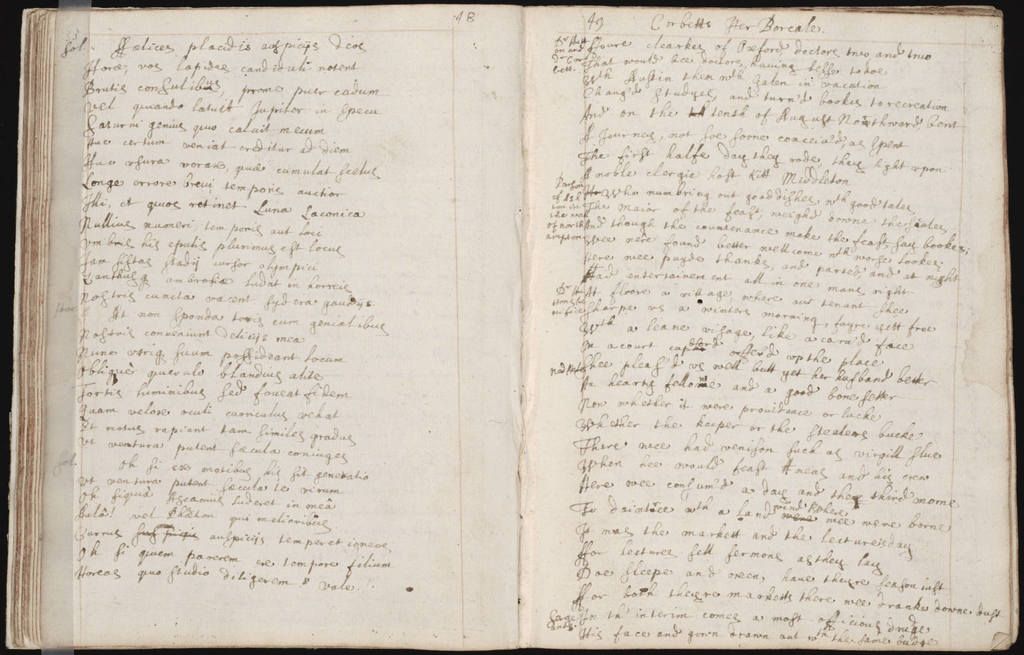 48
Sol. Fælices placidis auspicijs dies
Horæ, vos lapides candiduli notent
Brutis consulibus, prome puer cadum
Vel quando latuit Jupiter in specu
Saturni genius quo caluit merum
hac certum veniat creditur ad diem
Hac usura vorax, quæ cumulat fœtus
Longe errore brevi temporis auctior
Illi, et quos retinet Luna Laconica
Nullius numeri temporis aut loci
Umbris his epulis plurimus est locus
Jam sistas stadij cursor olympici
ambrosiæ ludit in horreis
Nostris cuncta vacent sydera gaudijs
At non sponda toris cum genialibus
Nostris conveniunt delicijs mea
Nunc utrisq suum possideant locum
Obliquè querulo blandius alite
Fortis luminibus sed foveat fidem
Quam veloæ oculi curriculus vehat
Et motus rapiant tam similes gradus
Ut ventura putent sæcula coniuges
Sol. Oh si ex motibus his sit generatio
Ut ventura putent sæcula te virum
Oh siqua Ascanius luderet in mea
Aula! vel Phæton qui melioribus
Currus auspicijs temperet igneos
Oh si quem parerem ex tempore filium
Horas quo studio diligerem! vale!
49 Corbetts Iter Boreale.
Foure clearkes of Oxford doctors two, and two
That would bee doctors, having lesse to doe
With Austin then with Galen in vacation
Chang'd studyes, and turn'd bookes to recreation
And on the tenth of August Northward bent
A Journey, not soe soone conceiv'd, as spent
The first halfe day they rode, they light upon
A noble clergie host Kitt Middleton
Who numbring out good dishes with good tales
The maior of the feast weighd downe the scales,
And though the countenance make the feast, say bookes;
Wee nere found better wellcome with worse lookes.
Here wee payde thankes, and parted, and at night
Had entertainement all in one mans right
At Flore a village, where our tenant shee
Sharpe as a winters morning, fayre yett free
With a leane visage, like a carv'd face
On a court cupbord offer'd up the place
Shee pleas'd us well butt yet her husband better
An hearty fellow and a good bone setter
Now whether it were providence or lucke
Whether the keeper or the stealers bucke
There wee had venison such as virgill slue
When hee would feast Æneas and his crew
Here wee consum'd a day, and the third morne
To daintrce with a land wind where wee were borne
It was the markett and the lectures day
For lectures sell sermons as they say
Doe sheepe and oxen, have theyre season iust
For both theyre marketts there wee dranke downe dust
In th' interim comes a most officious drudge
His face and gown drawn out with the same budge